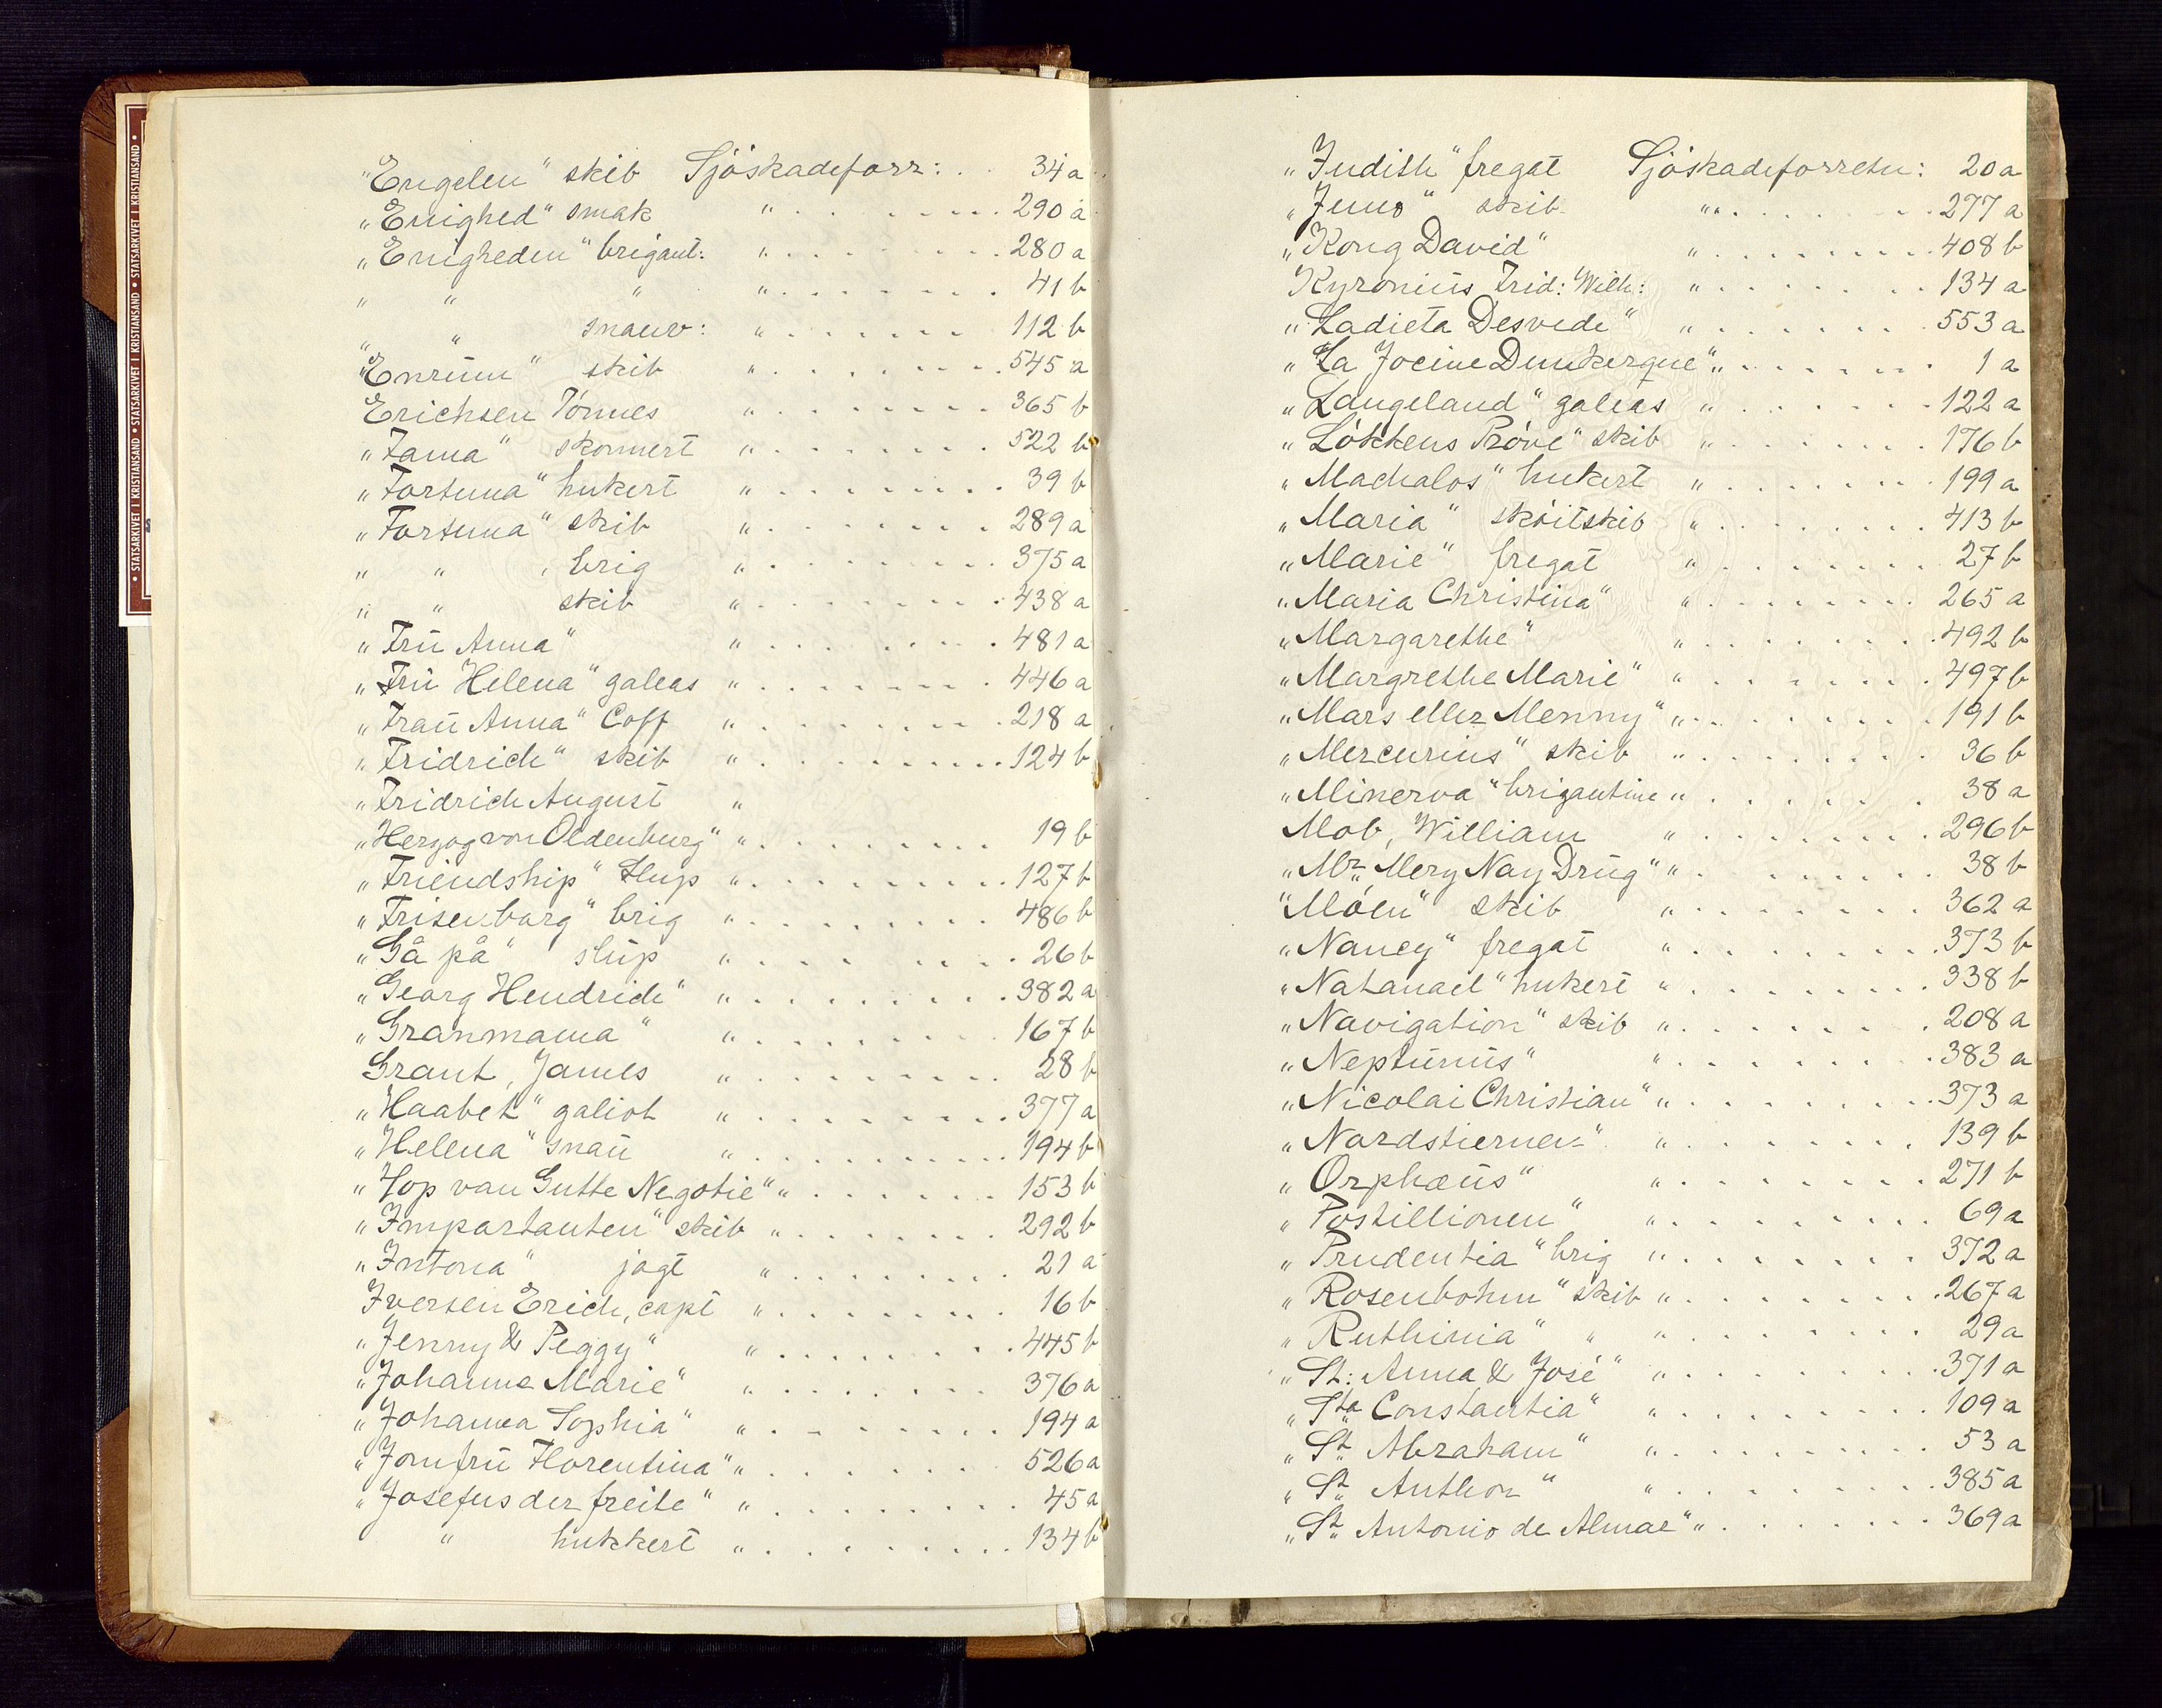 • STATSARKIVET I KRISTIANSAND • STATSARKIVET I KRISTIANSAND • STATSARKIVET I KRISTIANSAND •
"Engelen" skib Sjöskadeforr: . . 34 a
"Enighed" smak " . . . . . . . . 290 a
"Enigheden" brigant: " . . . . . . . . 280 a
" " " " . . . . . . . . 41 b
" " snauv: " . . . . . . . 112 b
"Enrüm" skib " . . . . . . . . 545 a
Erichsen Tönnes " . . . . . . . . 365 b
"Fama" skonnert " . . . . . . . . 522 b
"Fortuna" hukert " . . . . . . . . 39 b
"Fortuna" skib " . . . . . . . . 289 a
" " brig " . . . . . . . . 375 a
" " skib " . . . . . . . . 438 a
"Frü Anna" " . . . . . . . . 481 a
"Frü Helena" galeas " . . . . . . . . 446 a
"Fraü Anna" Coff " . . . . . . . . 218 a
"Fridrich" skib " . . . . . . . . 124 b
"Fridrich August "
"Herzog von Oldenburg" " . . . . . . . . 19 b
"Friendship" Slup " . . . . . . . . 127 b
"Frisenborg" brig " . . . . . . . . 486 b
"Gå på" slüp " . . . . . . . . 26 b
"Georg Hendrich" " . . . . . . . . 382 a
"Granmama" " . . . . . . . . 167 b
Grant, James " . . . . . . . . 28 b
"Haabet" galiot " . . . . . . . . 377 a
"Helena" snaü " . . . . . . . . 194 b
"Hop van Gutte Negotie" " . . . . . . . 153 b
"Importanten" skib " . . . . . . . . 292 b
"Intona" jagt " . . . . . . . . 21 a
Iversen Erich, capt " . . . . . . . . 16 b
"Jenny & Peggy" " . . . . . . . . 445 b
"Johanne Marie" " . . . . . . . . 376 a
"Johanna Sophia" " . . . . . . . . 194 a
"Jomfrü Florentina" " . . . . . . . 526 a
"Josefus der freite" " . . . . . . . . 45 a
" hukkert " . . . . . . . . 134 b
"Judith" fregat Sjöskadeforretn: 20 a
"Juno" skib " . . . . . . . . 277 a
"Kong David" " . . . . . . . . 408 b
Kyronius, Frid: Wilh: " . . . . . . . . 134 a
"Ladieta Desvede" " . . . . . . . . 553 a
"La Jocine Dunkerque" " . . . . . . . 1 a
"Langeland" galeas " . . . . . . . 122 a
"Lökkens Pröve" skib " . . . . . . . . 176 b
"Machalos" hukert " . . . . . . . . 199 a
"Maria" sköitskib " . . . . . . . . 413 b
"Marie" fregat " . . . . . . . . 27 b
"Maria Christina" " . . . . . . . . 265 a
"Margarethe" " . . . . . . . . 492 b
"Margrethe Marie" " . . . . . . . . 497 b
"Mars eller Menny" " . . . . . . . . 191 b
"Mercurius" skib " . . . . . . . . 36 b
"Minerva" brigantine " . . . . . . . 38 a
Mob, William " . . . . . . . . 296 b
"Mr. Mery Nay Drüg" " . . . . . . . . 38 b
"Möen" skib " . . . . . . . . 362 a
"Nancy" fregat " . . . . . . . . 373 b
"Natanael" hukert " . . . . . . . . 338 b
"Navigation" skib " . . . . . . . . 208 a
"Neptünüs" " . . . . . . . . 383 a
"Nicolai Christian" " . . . . . . . . 373 a
"Nordstiernen" " . . . . . . . . 139 b
"Orphæüs" " . . . . . . . . 271 b
"Postillionen" " . . . . . . . . 69 a
"Prudentia" brig " . . . . . . . . 372 a
"Rosenbohm" skib " . . . . . . . . 267 a
"Ruthinia" " " . . . . . . . . 29 a
"St: Anna & José" " . . . . . . . . 371 a
"Sta Constantia" " . . . . . . . . 109 a
"St. Abraham" " . . . . . . . . 53 a
"St. Anthon" " . . . . . . . . 385 a
"St. Antonio de Almae" " . . . . . . . 369 a